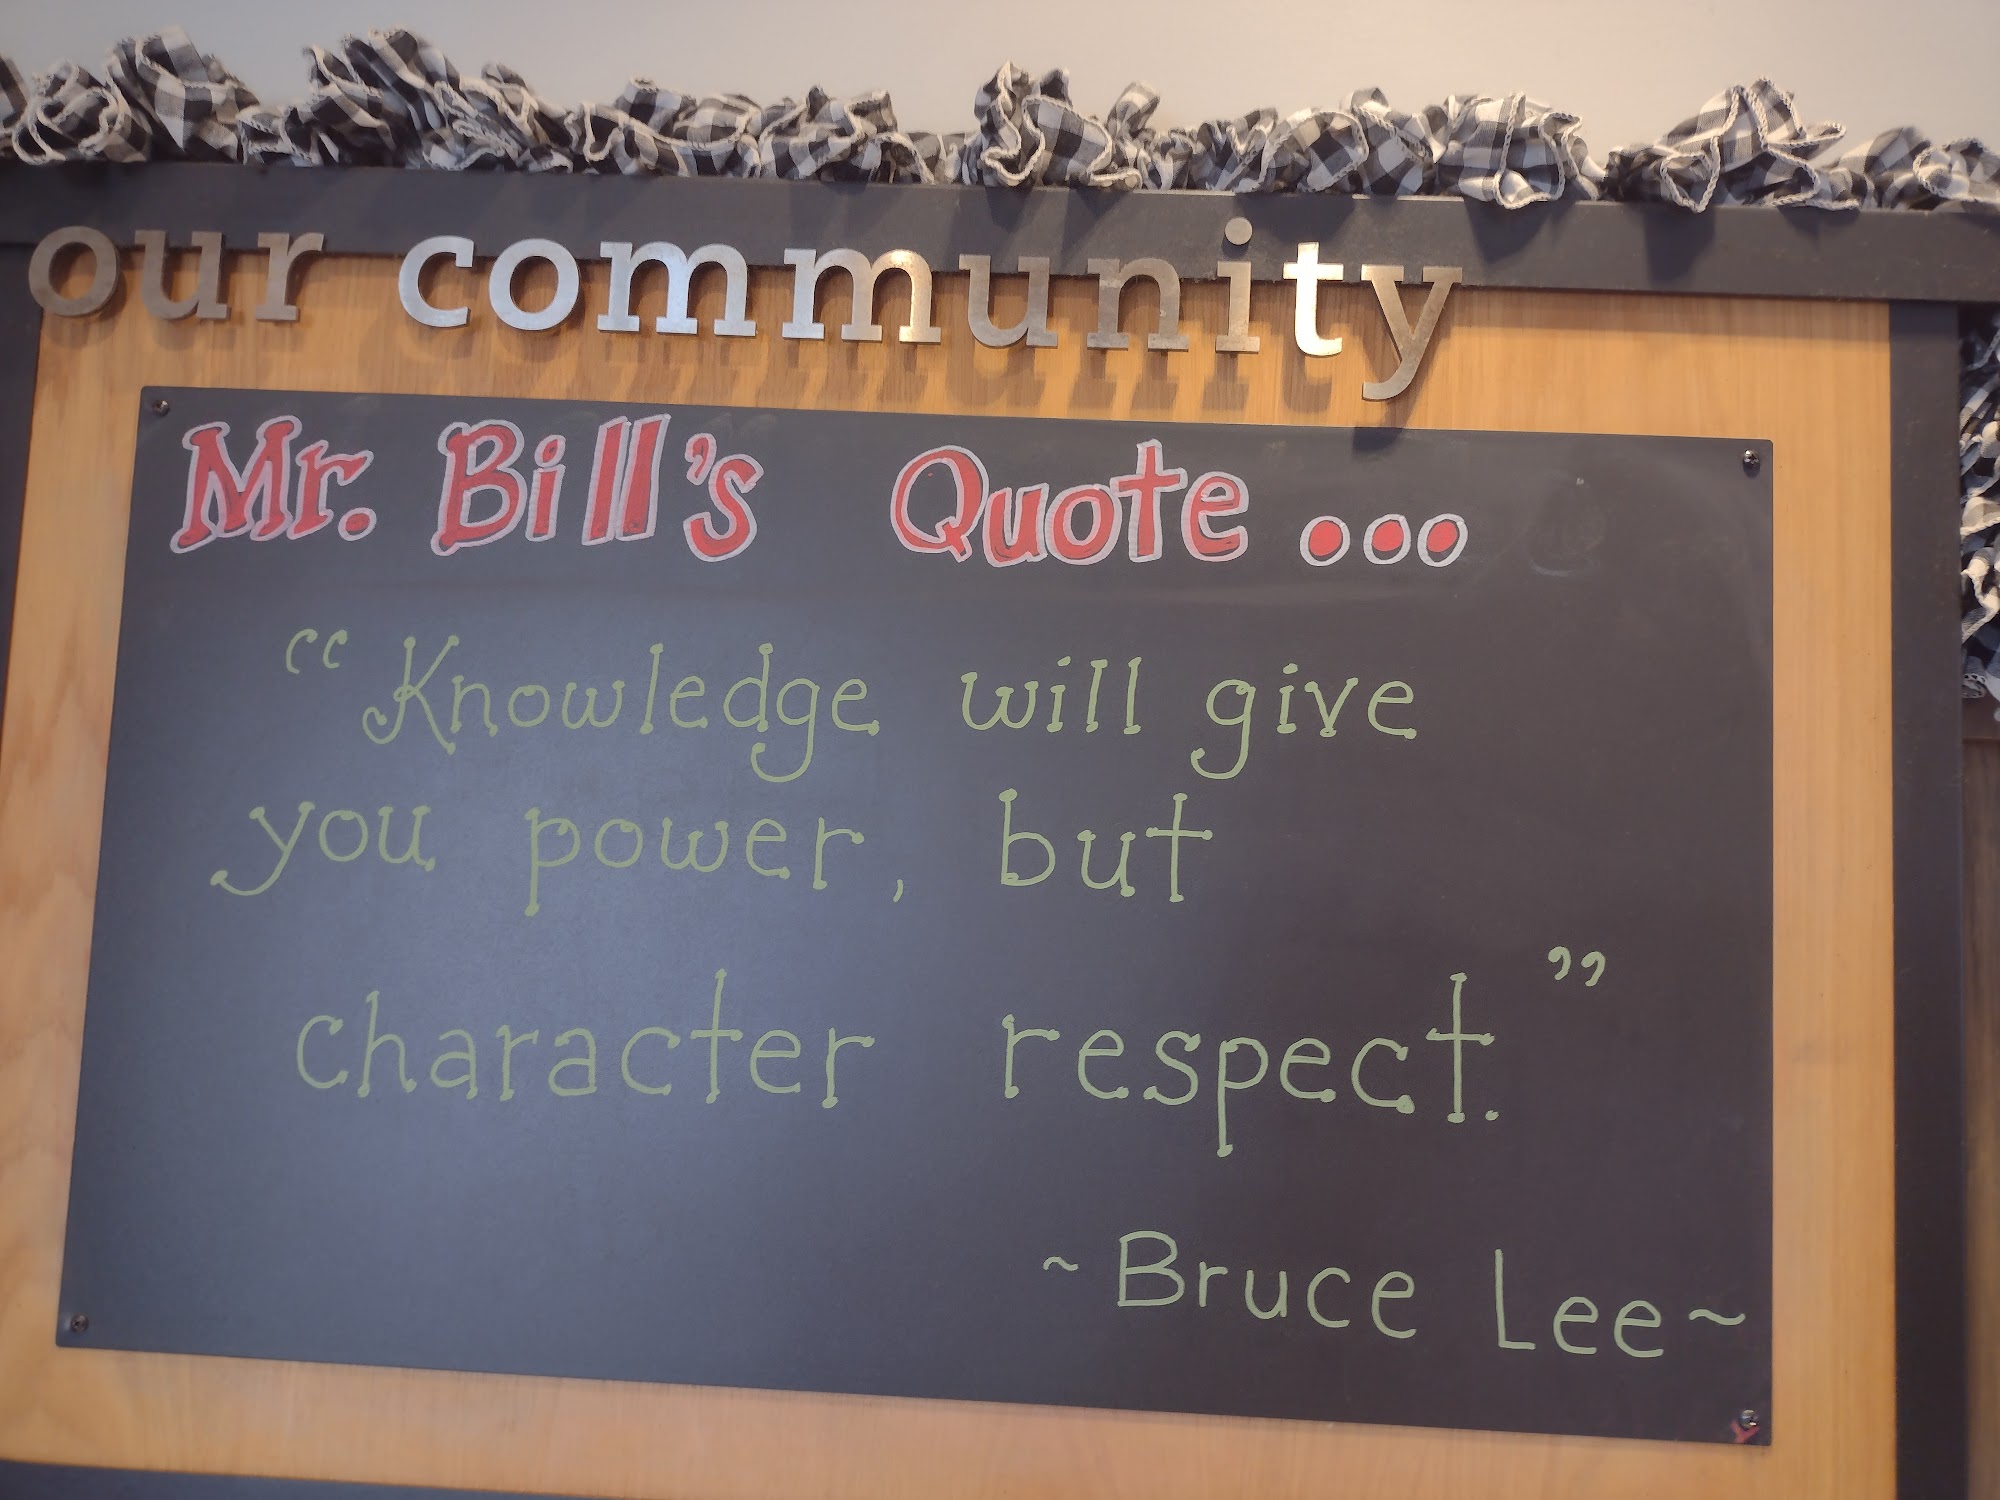 our community
Mr. Bill's Quote...
“Knowledge will give
you power, but
character respect.”
~Bruce Lee~